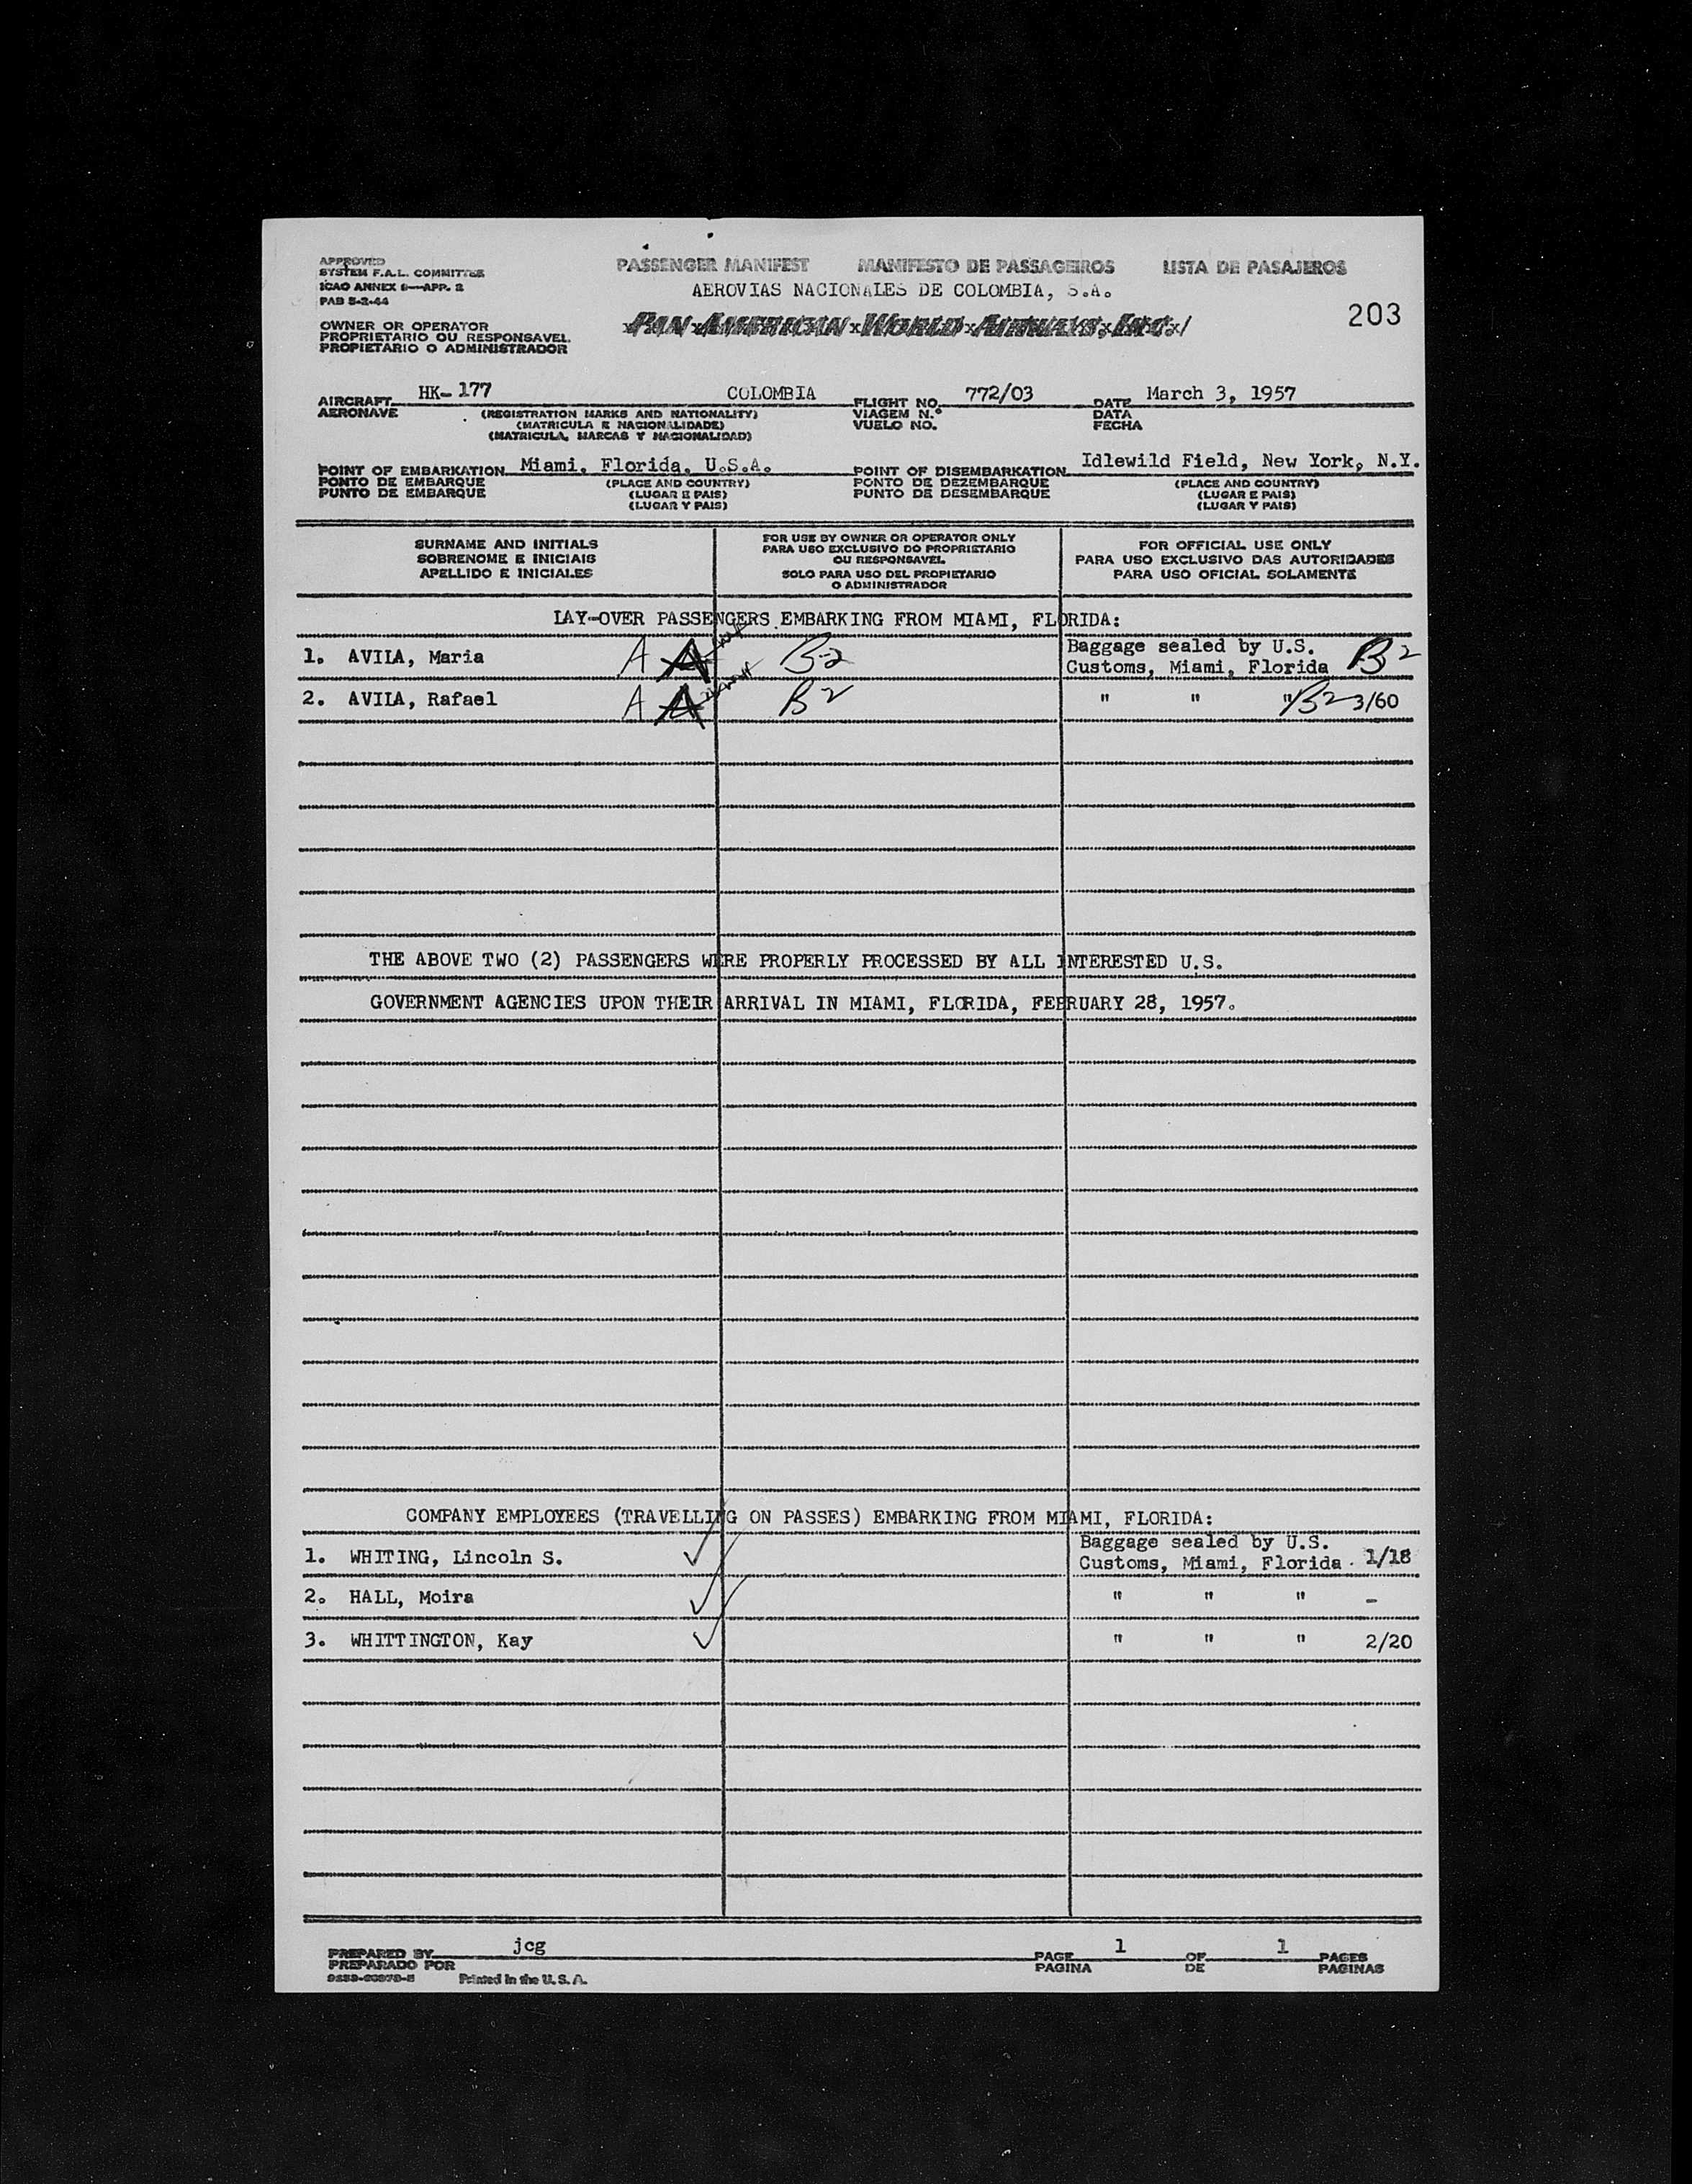 APPROVED
SYSTEM F.A.L. COMMITTEE
ICAO ANNEX 9—APP. 2
PAB 5-2-44
PASSENGER MANIFEST MANIFESTO DE PASSAGEIROS LISTA DE PASAJEROS
AEROVIAS NACIONALES DE COLOMBIA, S.A.
PAN AMERICAN WORLD AIRWAYS, INC.
203
OWNER OR OPERATOR
PROPRIETARIO OU RESPONSAVEL
PROPIETARIO O ADMINISTRADOR
AIRCRAFT HK-177 COLOMBIA FLIGHT NO. 772/03 DATE March 3, 1957
AERONAVE (REGISTRATION MARKS AND NATIONALITY) VIAGEM N.º DATA
(MATRICULA E NACIONALIDADE) VUELO NO. FECHA
(MATRICULA, MARCAS Y NACIONALIDAD)
POINT OF EMBARKATION Miami, Florida, U.S.A. POINT OF DISEMBARKATION Idlewild Field, New York, N.Y.
PONTO DE EMBARQUE (PLACE AND COUNTRY) PONTO DE DEZEMBARQUE (PLACE AND COUNTRY)
PUNTO DE EMBARQUE (LUGAR E PAIS) PUNTO DE DESEMBARQUE (LUGAR E PAIS)
(LUGAR Y PAIS) (LUGAR Y PAIS)
SURNAME AND INITIALS
SOBRENOME E INICIAIS
APELLIDO E INICIALES
FOR USE BY OWNER OR OPERATOR ONLY
PARA USO EXCLUSIVO DO PROPRIETARIO
OU RESPONSAVEL
SOLO PARA USO DEL PROPIETARIO
O ADMINISTRADOR
FOR OFFICIAL USE ONLY
PARA USO EXCLUSIVO DAS AUTORIDADES
PARA USO OFICIAL SOLAMENTE
LAY-OVER PASSENGERS EMBARKING FROM MIAMI, FLORIDA:
1. AVILA, Maria A A B-2 Baggage sealed by U.S.
Customs, Miami, Florida B2
2. AVILA, Rafael A A B2 " " " B2 3/60
THE ABOVE TWO (2) PASSENGERS WERE PROPERLY PROCESSED BY ALL INTERESTED U.S.
GOVERNMENT AGENCIES UPON THEIR ARRIVAL IN MIAMI, FLORIDA, FEBRUARY 28, 1957.
COMPANY EMPLOYEES (TRAVELLING ON PASSES) EMBARKING FROM MIAMI, FLORIDA:
1. WHITING, Lincoln S. Baggage sealed by U.S.
Customs, Miami, Florida. 1/18
2. HALL, Moira " " " -
3. WHITTINGTON, Kay " " " 2/20
PREPARED BY jcg PAGE 1 OF 1 PAGES
PREPARADO POR PAGINA DE PAGINAS
Printed in the U.S.A.